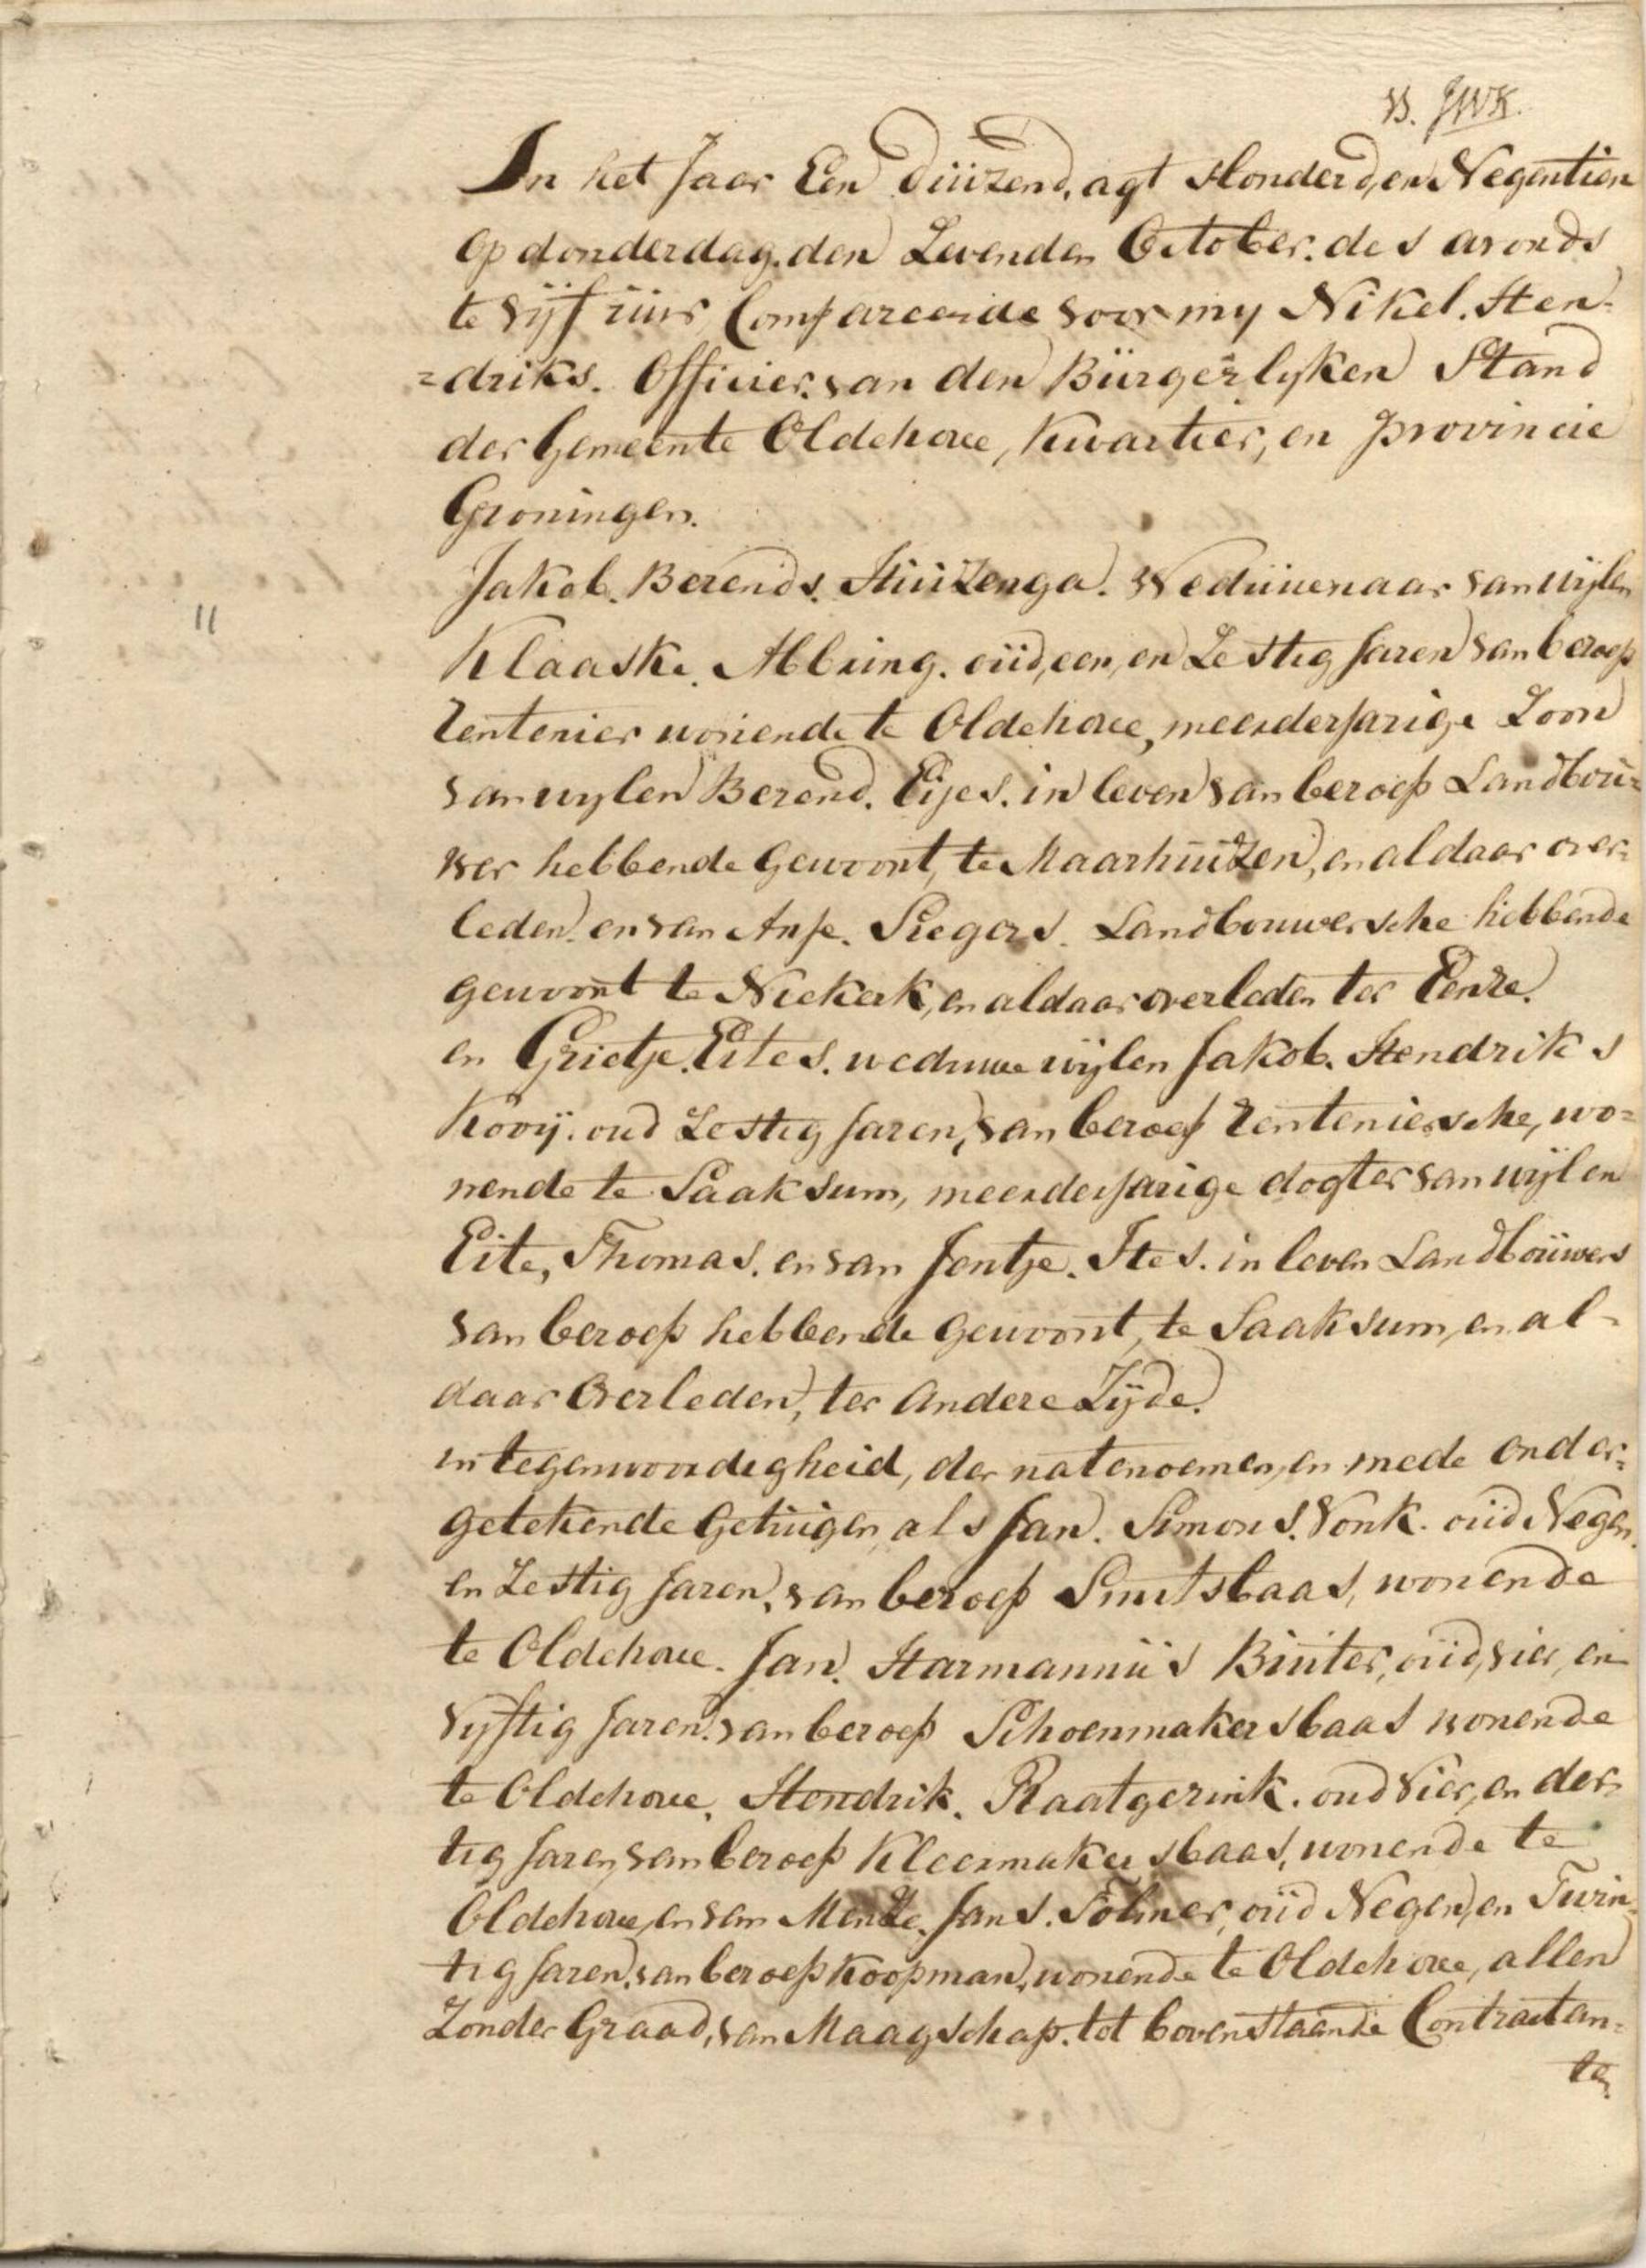 33. JWK.
In het Jaar Een duizend, agt Honderd, en Negentien
op donderdag, den Zevenden October. des avonds
te vijf uur Compareerde voor my Nikel. Hen-
=driks. Officier. van den Burgerlyken Stand
der Gemeente Oldehove, Kwartier, en provincie
Groningen.
Jakob. Berends. Huizenga. Weduwenaar van wijlen
11
Klaaske. Abbring. oud, een, en Zestig Jaren van beroep
rentenier wonende te Oldehove, meerderjarige Zoon
van wylen Berend. Eijes. in leven van beroep Landbou=
wer hebbende Gewoont, te Maarhuizen, en aldaar over=
leden. en van Anje. Siegers. Landbouwersche hebbende
gewoont te Niekerk, en aldaar overleden ter Eenre.
en Grietje. Eites. weduwe wijlen Jakob. Hendriks
Kooij. oud Zestig Jaren, van beroep renteniersche, wo=
nende te Saaksum, meerderjarige dogter van wijlen
Eite, Thomas. en van Jentje. Ites. in leven Landbouwers
van beroep hebbende Gewoont, te Saaksum, en al-
daar Overleden, ter Andere Zijde.
in tegenwoordigheid, der natenoemen, en mede onder=
getekende Getuigen, als Jan. Simons. Vonk. oud Negen
en Zestig Jaren, van beroep Smitsbaas, wonende
te Oldehove. Jan. Harmannus Buiter, oud, vier, en
Vyftig Jaren. van beroep Schoenmakersbaas wonende
te Oldehove, Hendrik. Raatgerink. oud Vier, en der=
tig Jaren, van beroep Kleermakersbaas, wonende te
Oldehove, en van Menze. Jans. Tolmer, oud Negen, en Twin=
tig Jaren, van beroep Koopman, wonende te Oldehove, allen
Zonder Graad, van Maagschap. tot bovenstaande Contractan=
ten